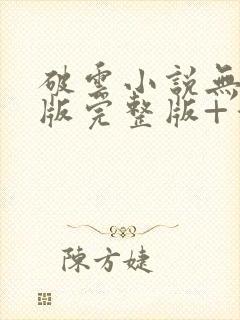 破雲小説無
版完整版+
陳方婕